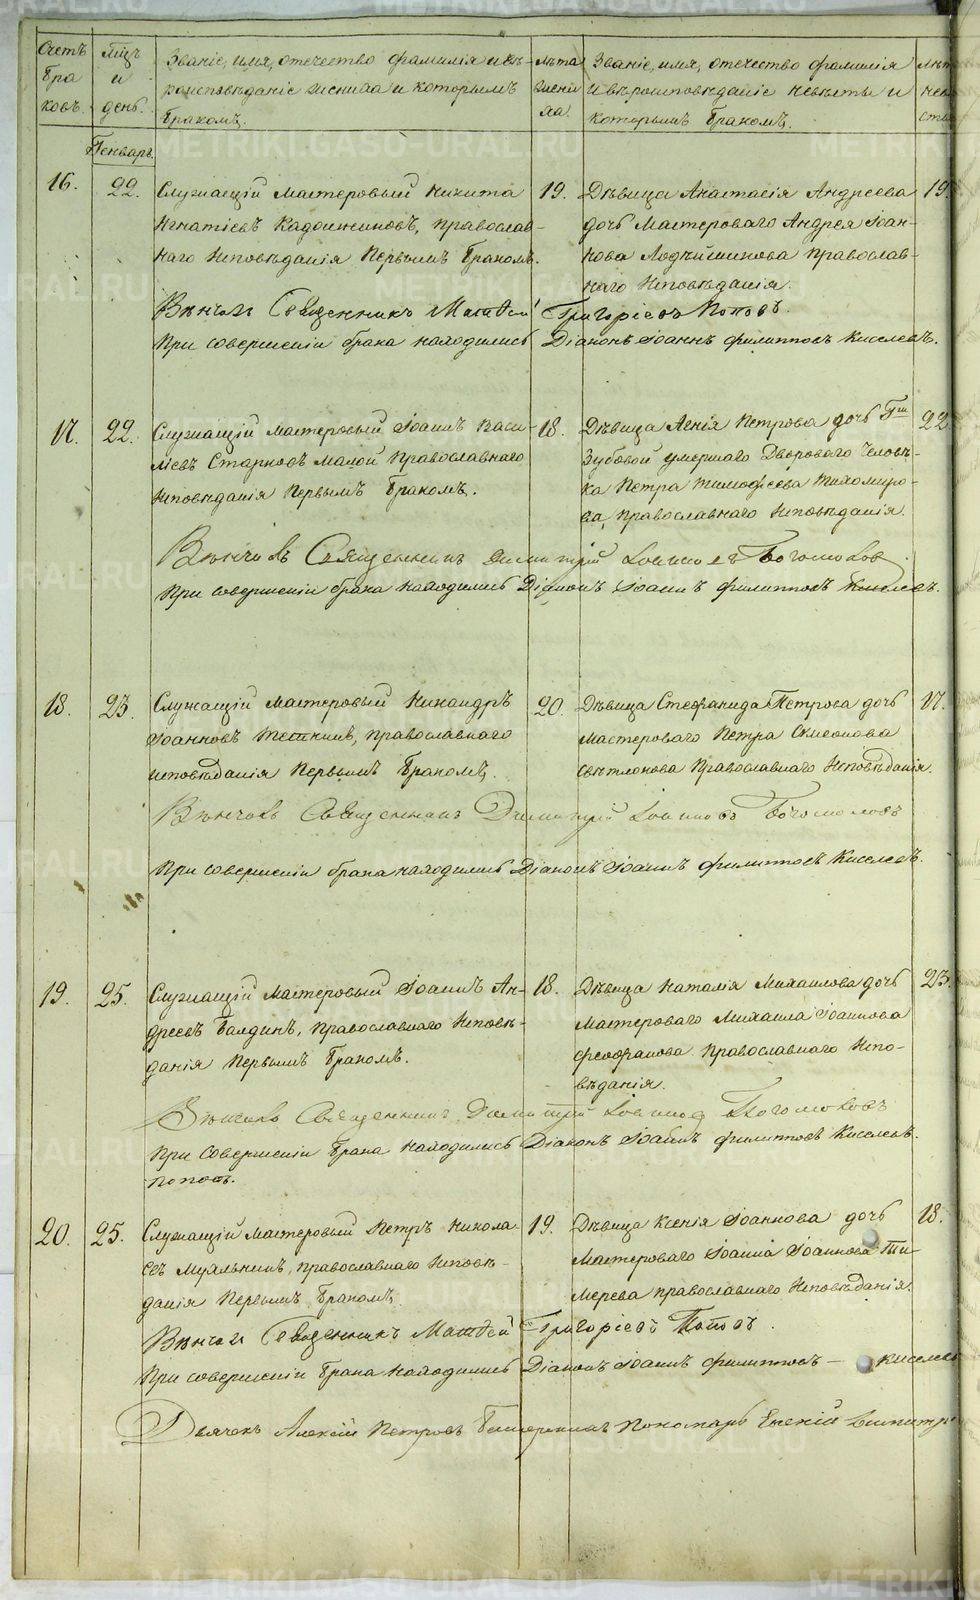 Счетъ бра ковъ.
Мцъ и день.
Званіе, имя, отечество фамилія и вѣ-
роисповѣданіе жениха и которымъ
бракомъ.
Лѣта жени ха.
Званіе, имя, отечество фамилія
и вѣроисповѣданіе невѣсты и
которымъ бракомъ.
Генварь.
16. 22. Служащій мастеровый Никита 19. Дѣвица Анастасія Андреева 19.
Игнатіевъ Кадошниковъ, православ- дочь Мастероваго Андрея Іоан-
наго Исповѣданія Первымъ бракомъ. нова Православ-
наго Исповѣданія.
Вѣнчалъ Священникъ Матѳей Григоріевъ Поповъ.
При совершеніи брака находились Діаконъ Іоаннъ Филиповъ Киселевъ.
17. 22. Служащій мастеровый Іоаннъ Васи- 18. Дѣвица Агнія Петрова дочь Гжи 22
льевъ Старковъ Малой Православнаго Зубовой умершаго Двороваго Человѣ-
Исповѣданія Первымъ бракомъ. ка Петра Тимофеева Тихомиро-
ва, православнаго Исповѣданія.
Вѣнчалъ Священникъ Димитрій Іоанновъ Богомоловъ
При совершеніи брака находились Діаконъ Іоаннъ Филиповъ Киселевъ.
18. 23. Служащій мастеровый Никандръ 20. Дѣвица Стефанида Петрова дочь 17.
Іоанновъ православнаго Мастероваго Петра Симеонова
исповѣданія Первымъ бракомъ. Свѣтлокова Православнаго Исповѣданія.
Вѣнчалъ Священникъ Димитрій Іоанновъ Богомоловъ
При совершеніи брака находились Діаконъ Іоаннъ Филиповъ Киселевъ.
19. 25. Служащій Мастеровый Іоаннъ Ан- 18. Дѣвица Наталія Михаилова дочь 23.
дреевъ Балдинъ, православнаго Исповѣ- Мастероваго Михаила Іоаннова
данія Первымъ бракомъ. Феофанова Православнаго Испо-
вѣданія.
Вѣнчалъ Священникъ Димитрій Іоанновъ Богомоловъ
При совершеніи брака находились Діаконъ Іоаннъ Филиповъ Киселевъ.
20. 25. Служащій мастеровый Петръ Никола 19. Дѣвица Ксенія Іоаннова дочь 18.
евъ Муяльнинъ, православнаго Исповѣ- Мастероваго Іоанна Іоаннова Ти-
данія Первымъ бракомъ. мерева православнаго Исповѣданія.
Вѣнчалъ Священникъ Матѳей Григоріевъ Поповъ.
При совершеніи брака находились Діаконъ Іоаннъ Филиповъ— Киселевъ
Дьячекъ Алексій Петровъ Пономарь
METRIKI.GASO-URAL.RU